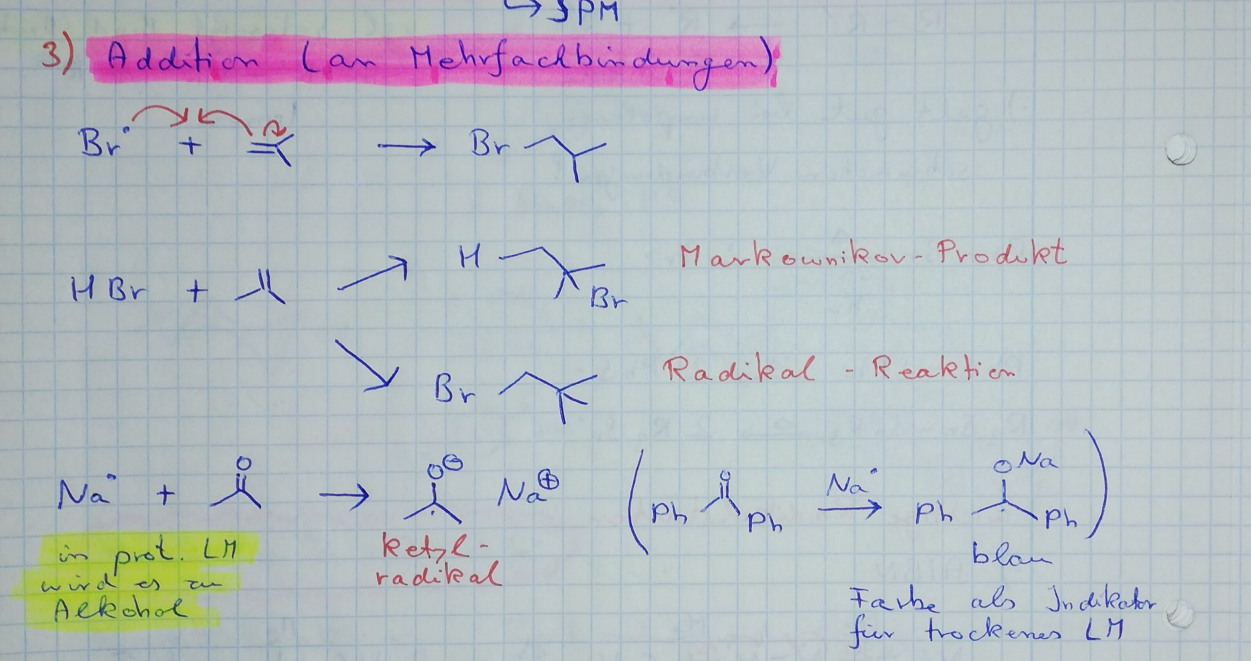 ↳ JPM
3) Addition (an Mehrfachbindungen)
Br• + → Br
HBr + H Br Markownikov-Produkt
Br Radikal-Reaktion
Na• + O → O⊖ Na⊕ ( Ph O Ph Na• → Ph ONa Ph )
in prot. LM
wird es zu
Alkohol
Ketyl-
radikal
blau
Farbe als Indikator
für trockenes LM